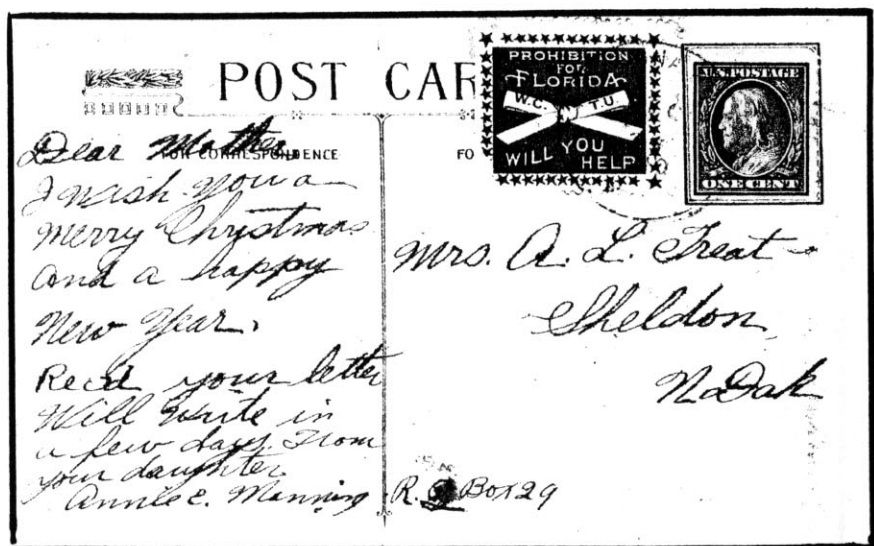 POST CAR
PROHIBITION
FOR
FLORIDA
W.C.T.U.
WILL YOU
HELP
U.S. POSTAGE
ONE CENT
FOR CORRESPONDENCE
FO
Dear Mother
I wish you a
Merry Christmas
and a happy
New Year.
Recd your letter
Will write in
a few days. From
your daughter
Annie E. Manning
Mrs. A. L. Treat
Sheldon
No Dak
R. Box 29